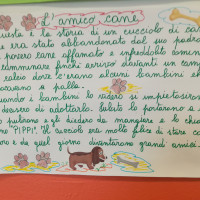 L'amico cane
questa è la storia di un cucciolo di ca
era stato abbandonato dal suo padro
povero cane affamato e infreddolito comin
camminare finché arrivò davanti un camp
calcio dove c'erano alcuni bambini che
giocavano a palla.
quando i bambini lo videro si impietosirono
decisero di adottarlo. Subito lo portarono a
lo pulirono e gli diedero da mangiare e lo chia
PIPPI. Il cucciolo era molto felice di stare co
e da quel giorno diventarono grandi amici.